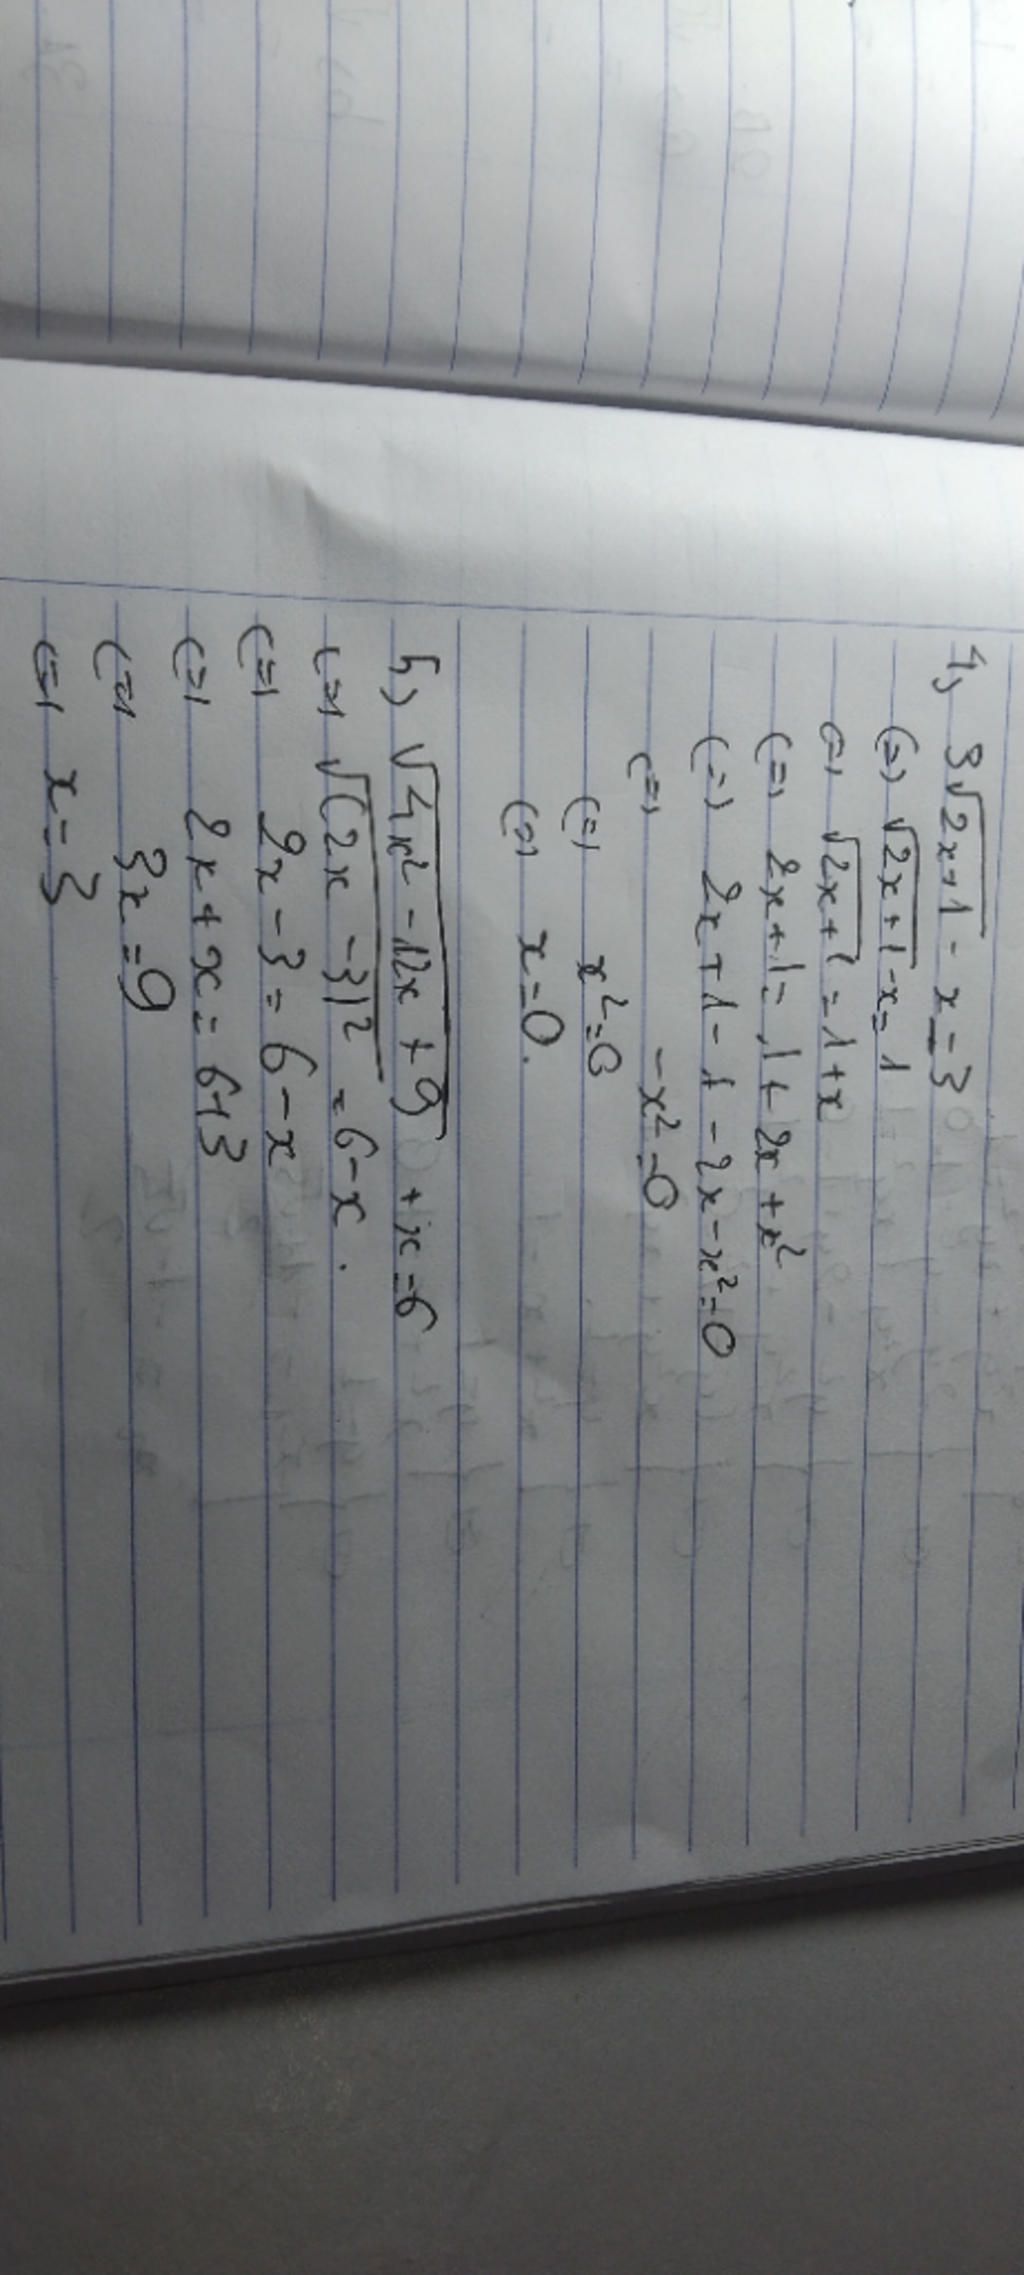 4, 3√2x+1 - x = 3
(=) √2x+1 - x = 1
(=) √2x+1 = 1+x
(=) 2x+1 = 1+ 2x + x²
(=) 2x+1 - 1 - 2x - x² = 0
(=) - x² = 0
(=) x² = 0
(=) x = 0.
5, √4x² - 12x + 9 + x = 6
(=) √(2x - 3)² = 6 - x.
(=) 2x - 3 = 6 - x
(=) 2x + x = 6+3
(=) 3x = 9
(=) x = 3